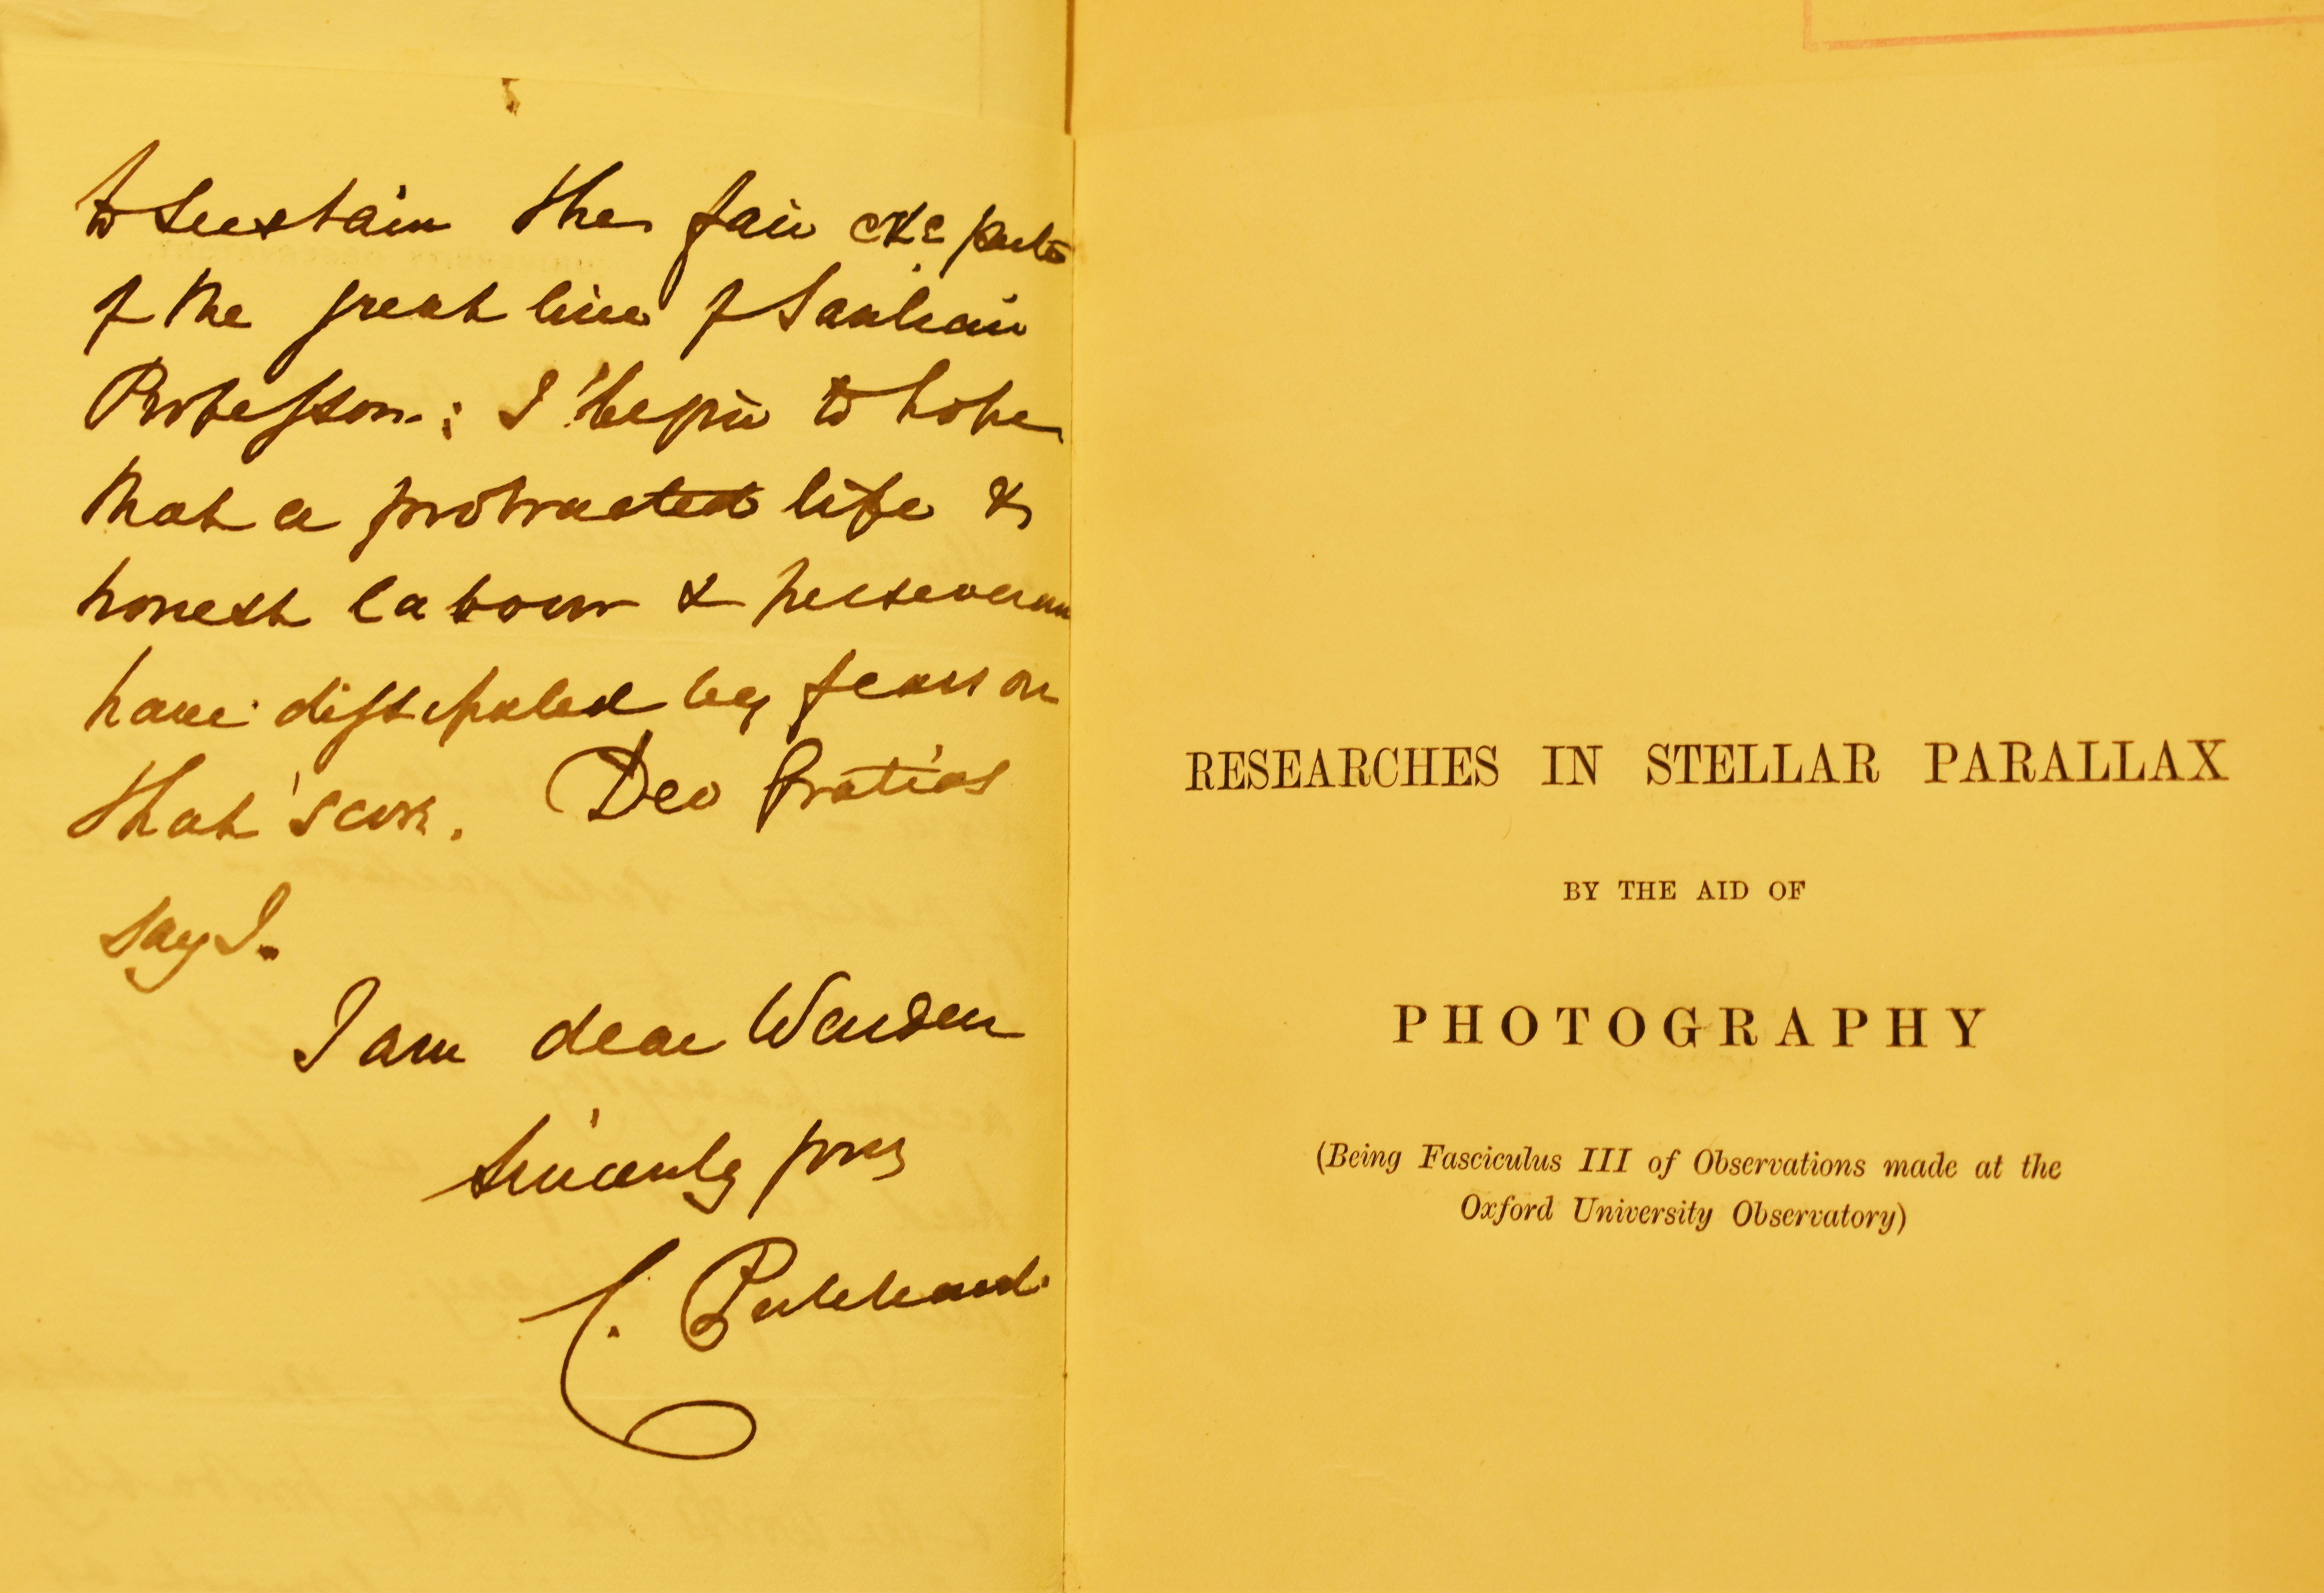 to sustain the fair
of the great line of Savilian
Professors: I begin to hope
that a protracted life &
honest labour & perseverance
have dissipated my fears on
that score. Deo Gratias
say I.
I am dear Warden
sincerely yours
C. Pritchard
RESEARCHES IN STELLAR PARALLAX
BY THE AID OF
PHOTOGRAPHY
(Being Fasciculus III of Observations made at the
Oxford University Observatory)